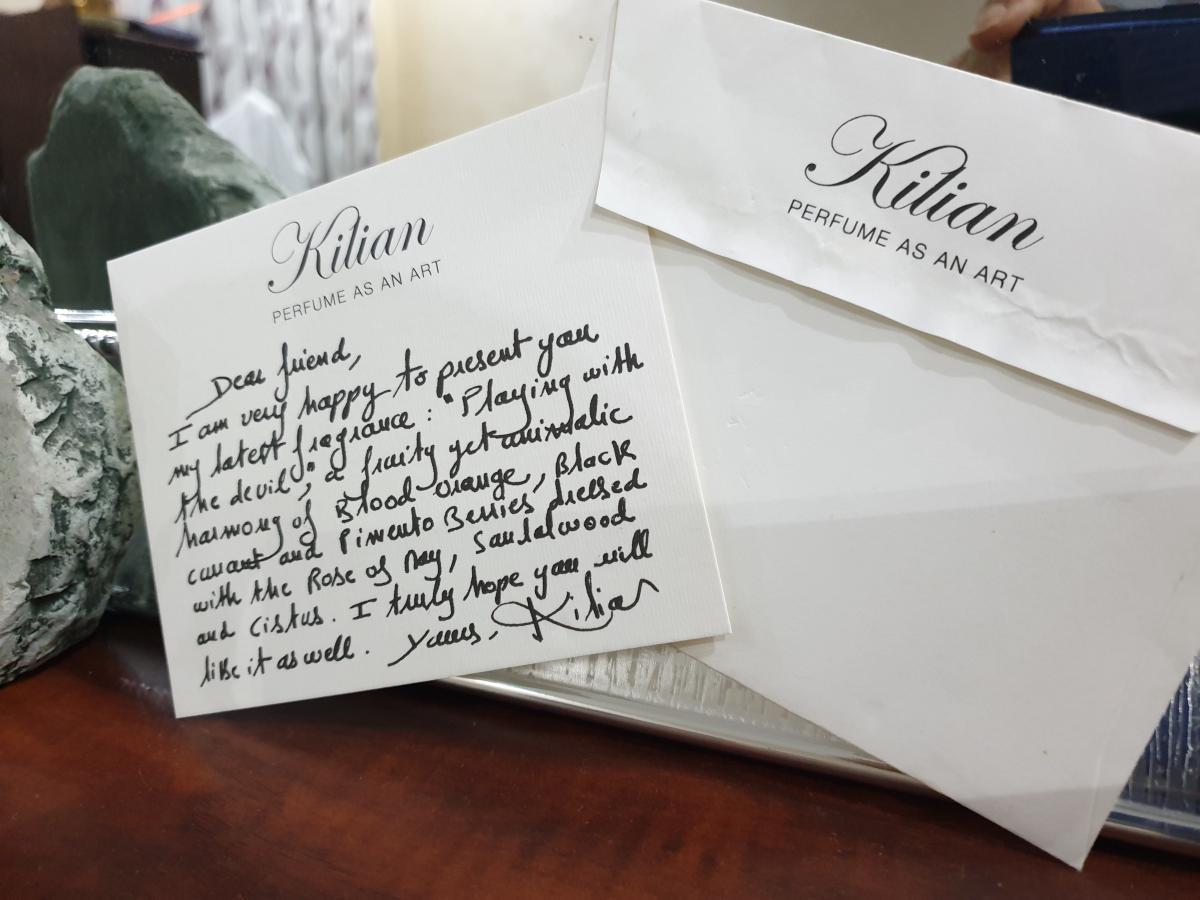 Kilian
PERFUME AS AN ART
Dear friend,
I am very happy to present you
my latest fragrance : "Playing with
the devil", a fruity yet animalic
harmony of Blood Orange, Black
currant and Pimento Berries dressed
with the Rose of May, Sandalwood
and Cistus. I truly hope you will
like it as well. Yours, Kilian
Kilian
PERFUME AS AN ART